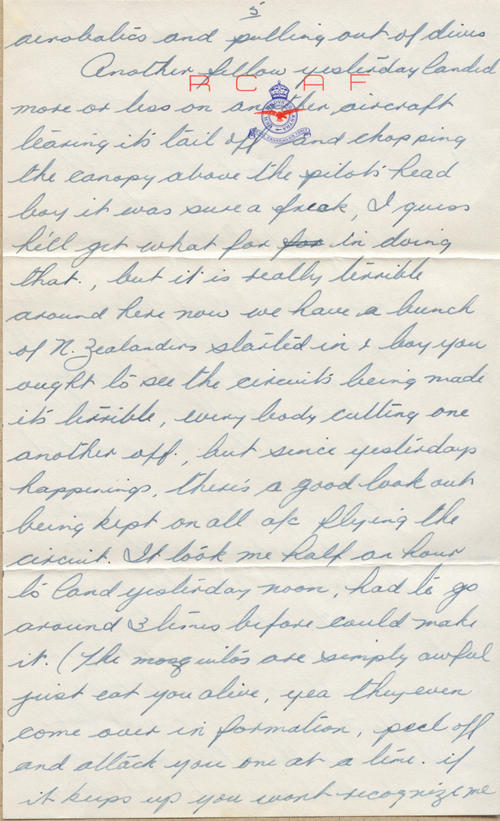 5
aerobatics and pulling out of dives
Another fellow yesterday landed
R C A F
more or less on another aircraft
tearing it's tail off and chopping
the canopy above the pilot's head
boy it was sure a freak, I guess
he'll get what for for in doing
that., but it is really terrible
around here now we have a bunch
of N. Zealanders started in & boy you
ought to see the circuits being made
it's terrible, every body cutting one
another off., but since yesterdays
happenings, there's a good look out
being kept on all a/c flying the
circuit. It took me half an hour
to land yesterday noon, had to go
around 3 times before could make
it. (The mosquitos are simply awful
just eat you alive, yea they even
come over in formation, peel off
and attack you one at a time. if
it keeps up you wont recognize me